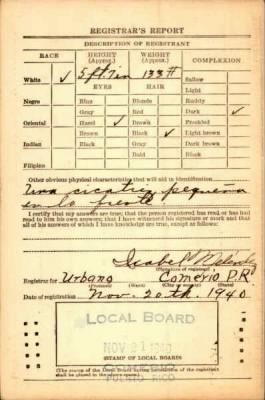 REGISTRAR'S REPORT
DESCRIPTION OF REGISTRANT
RACE HEIGHT (Approx.) WEIGHT (Approx.) COMPLEXION
White ✓ 5 ft 7 in 133 # Sallow
EYES HAIR Light
Negro Blue Blonde Ruddy
Gray Red Dark ✓
Oriental Hazel ✓ Brown Freckled
Brown Black ✓ Light brown
Indian Black Gray Dark brown
Bald Black
Filipino
Other obvious physical characteristics that will aid in identification
Una cicatriz pequeña
en la frente
I certify that my answers are true; that the person registered has read or has had
read to him his own answers; that I have witnessed his signature or mark and that
all of his answers of which I have knowledge are true, except as follows:
Isabel
(Signature of registrar)
Registrar for Urbano Comerío P.R.
(Precinct) (Ward) (City or county) (State)
Date of registration Nov. 20th. 1940
LOCAL BOARD
NOV 21 1940
COMERIO
PUERTO RICO
STAMP OF LOCAL BOARD
(The stamp of the Local Board having jurisdiction of the registrant
shall be placed in the above space)